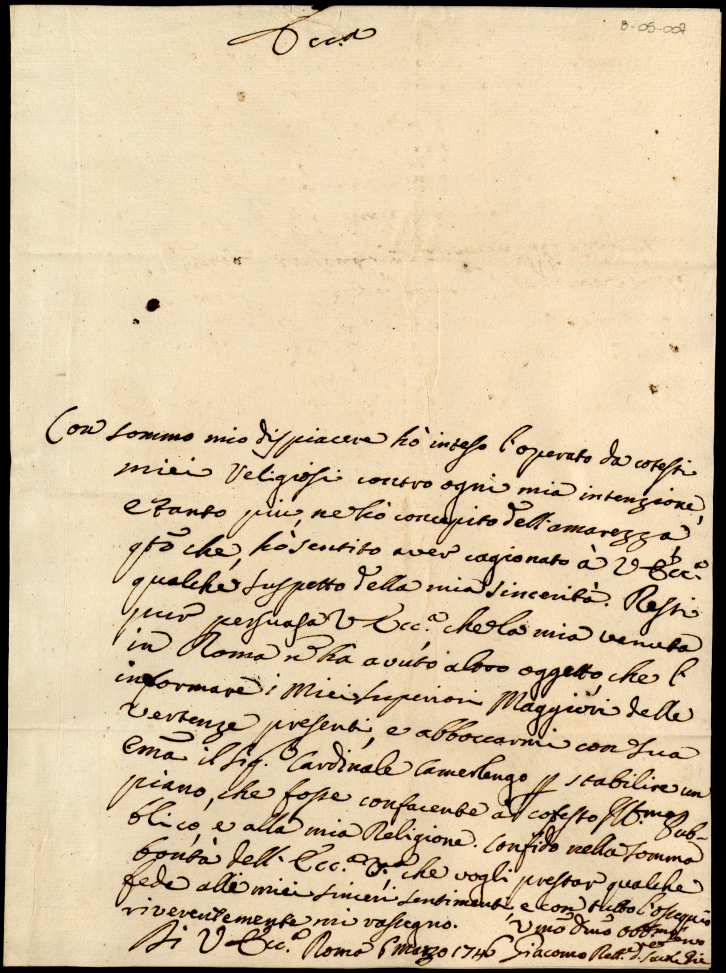 8-05-007
Ecc.a
Con sommo mio dispiacere hò inteso l'operato da cotesti
miei Religiosi contro ogni mia intenzione,
e tanto più, ne hò concepito dell'amarezza,
qto che, hò sentito aver cagionato à V. Ecc.a
qualche suspetto della mia sincerità. Resti
pur persuasa V. Ecc.a che la mia venuta
in Roma nō hà avuto altro oggetto che l'
informare i Miei Superiori Maggiori delle
vertenze presenti, e abboccarmi con sua
Emā il Sig.r Cardinale Camerlengo p stabilire un
piano, che fosse confacente à cotesto Ill.mo Pub-
blico, e alla mia Religione. Confido nella somma
bontà dell' Ecc.a V.a che vogli prestar qualche
fede alli miei sinceri sentimenti, e con tutto l'ossequio
riverentemente mi rassegno.
Di V. Ecc.a Roma 6 marzo 1746
Umo Dmo Obb.mo Servo
Giacomo Rett.e